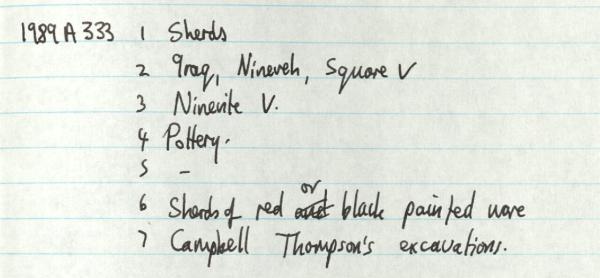 1989 A 333 1 Sherds
2 Iraq, Nineveh, Square V
3 Ninevite V.
4 Pottery.
5 –
6 Sherds of red or black painted ware
7 Campbell Thompson's excavations.